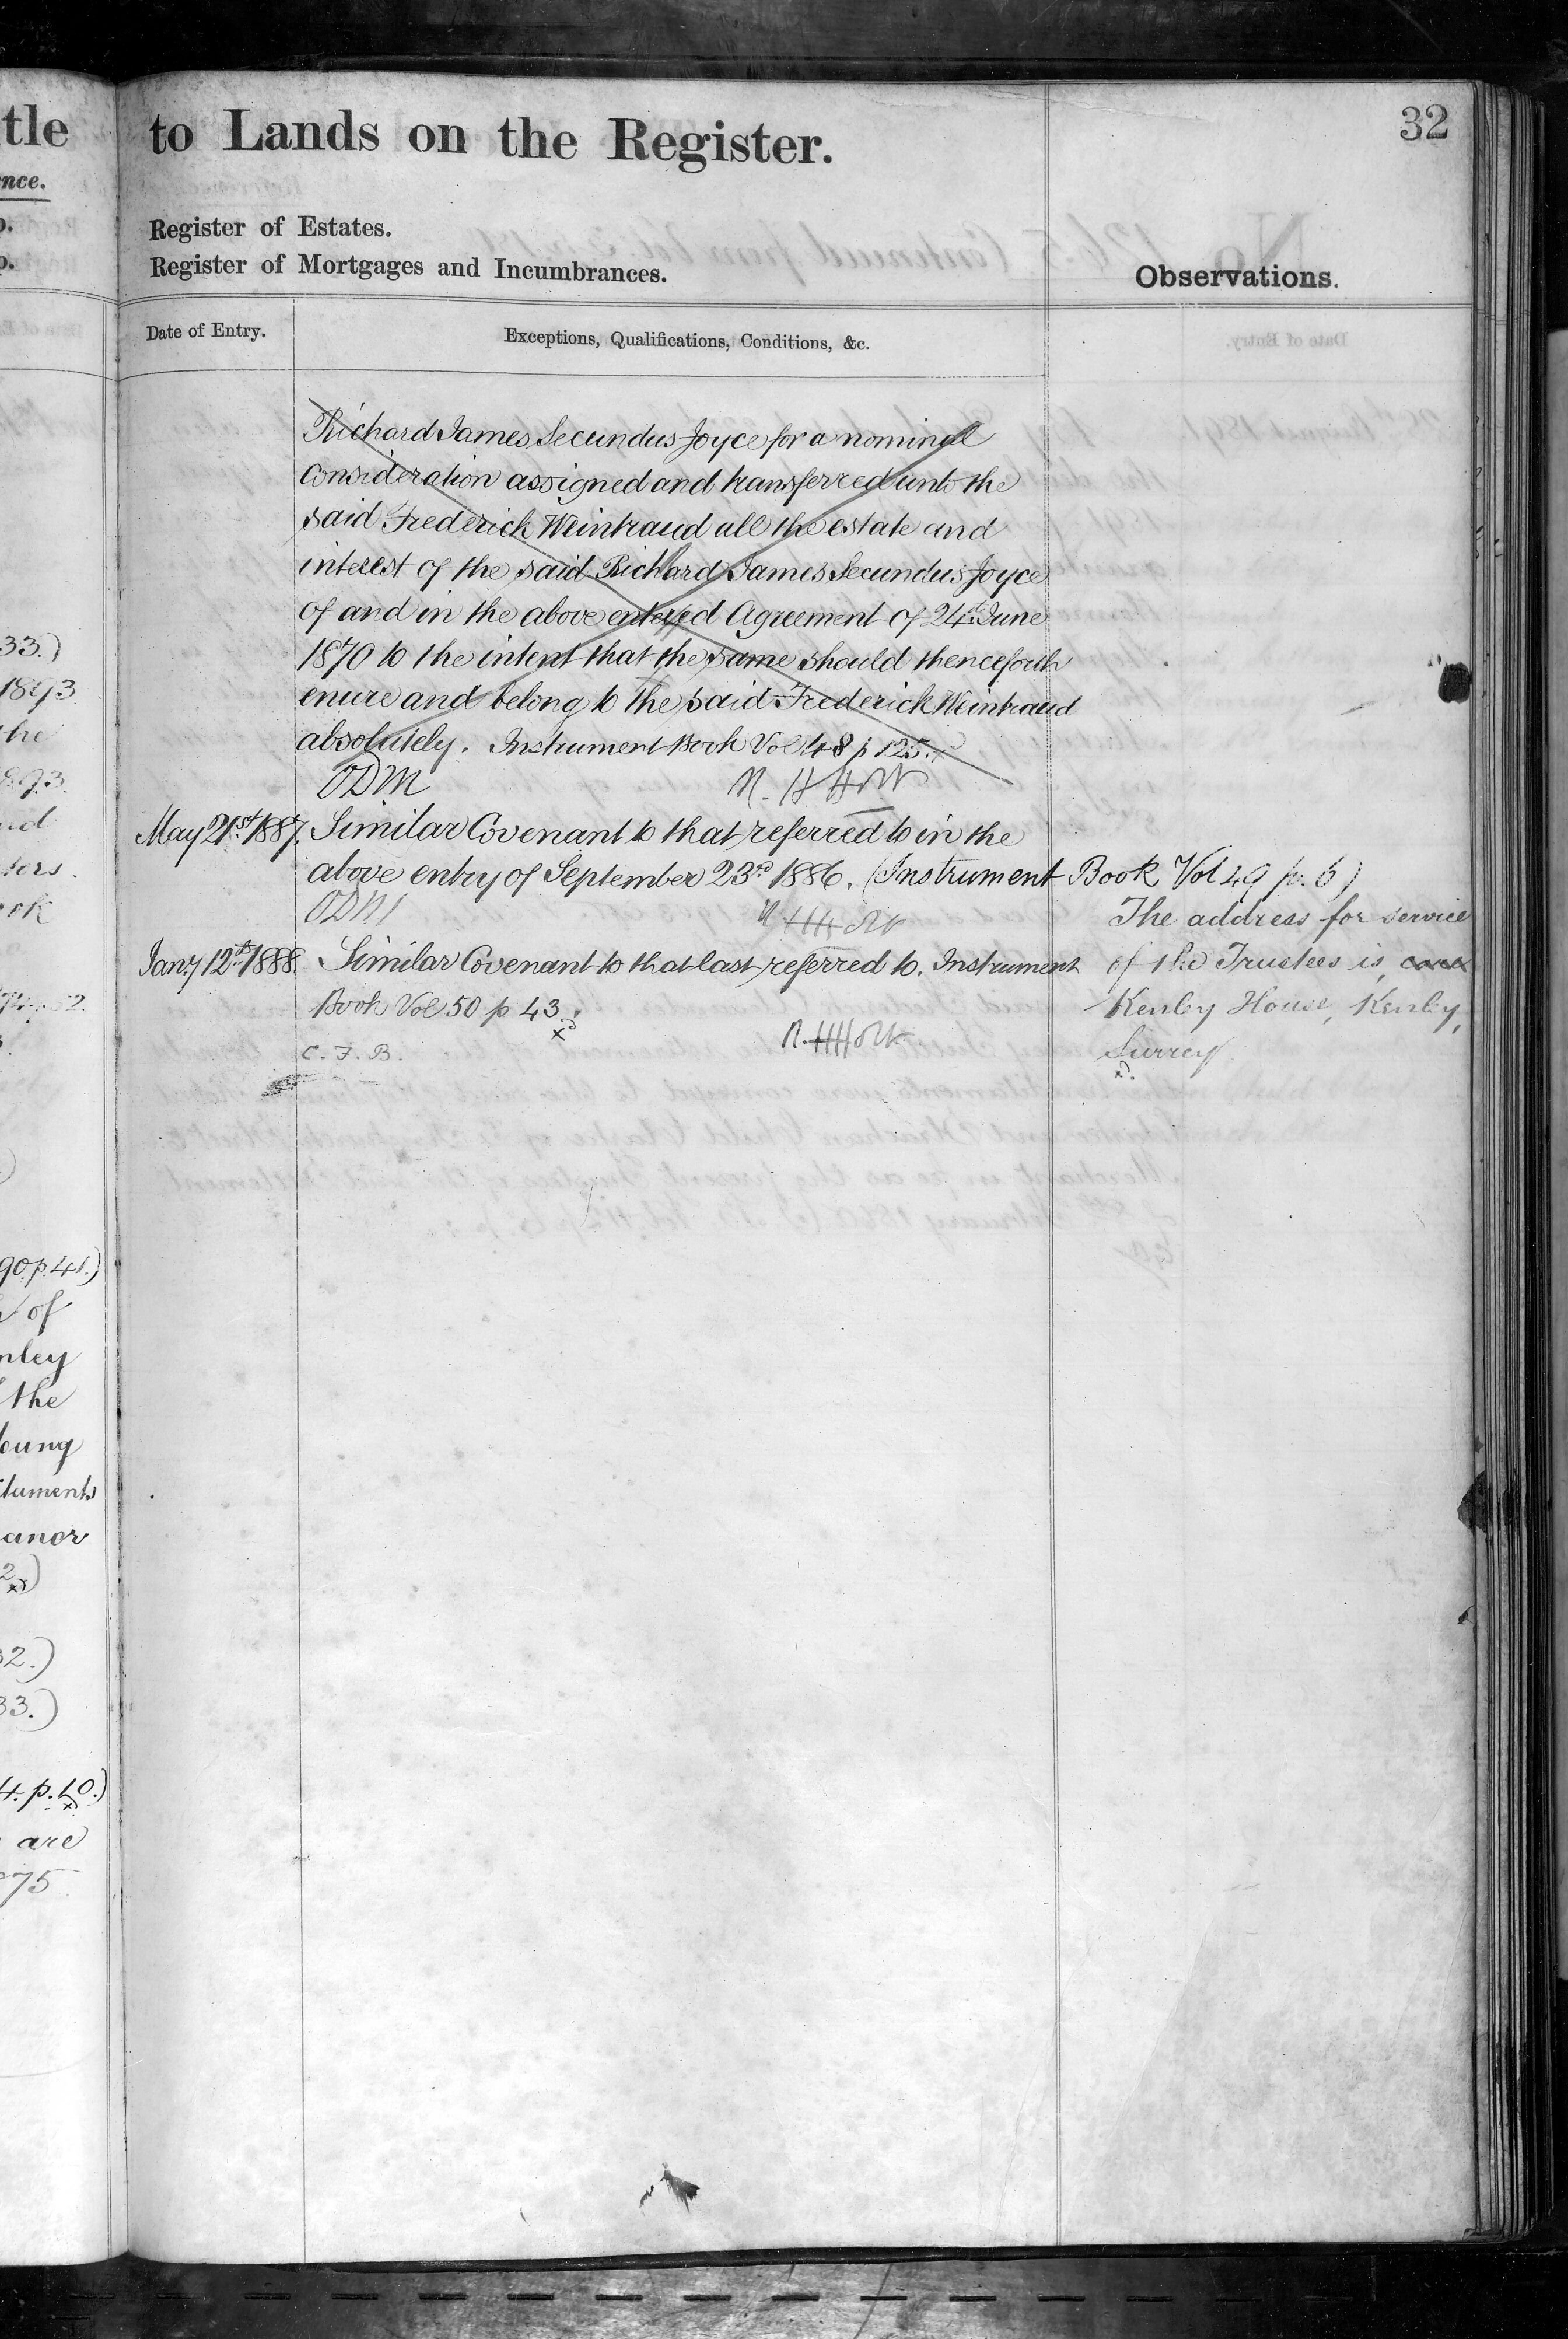 32
to Lands on the Register.
Register of Estates.
Register of Mortgages and Incumbrances.
Observations.
Date of Entry.
Exceptions, Qualifications, Conditions, &c.
Richard James Secundus Joyce for a nominal
consideration assigned and transferred unto the
said Frederick Weintraud all the estate and
interest of the said Richard James Secundus Joyce
of and in the above entered Agreement of 24th June
1870 to the intent that the same should thenceforth
enure and belong to the said Frederick Weintraud
absolutely. Instrument Book Vol 48 p 125.
ODM N. H Holt
May 21st 1887. Similar Covenant to that referred to in the
above entry of September 23rd 1886. (Instrument Book Vol 49 p. 6)
ODM N. H Holt
Jany 12th 1888. Similar Covenant to that last referred to. Instrument
Book Vol 50 p 43.
C. F. B. N. H Holt
The address for service
of the Trustees is
Kenley House, Kenley,
Surrey
tle
nce.
p.
p.
33.)
1893
the
893
nd
ok
90. p. 41.)
of
nley
the
anor
32.)
33.)
4. p. 10.)
are
75